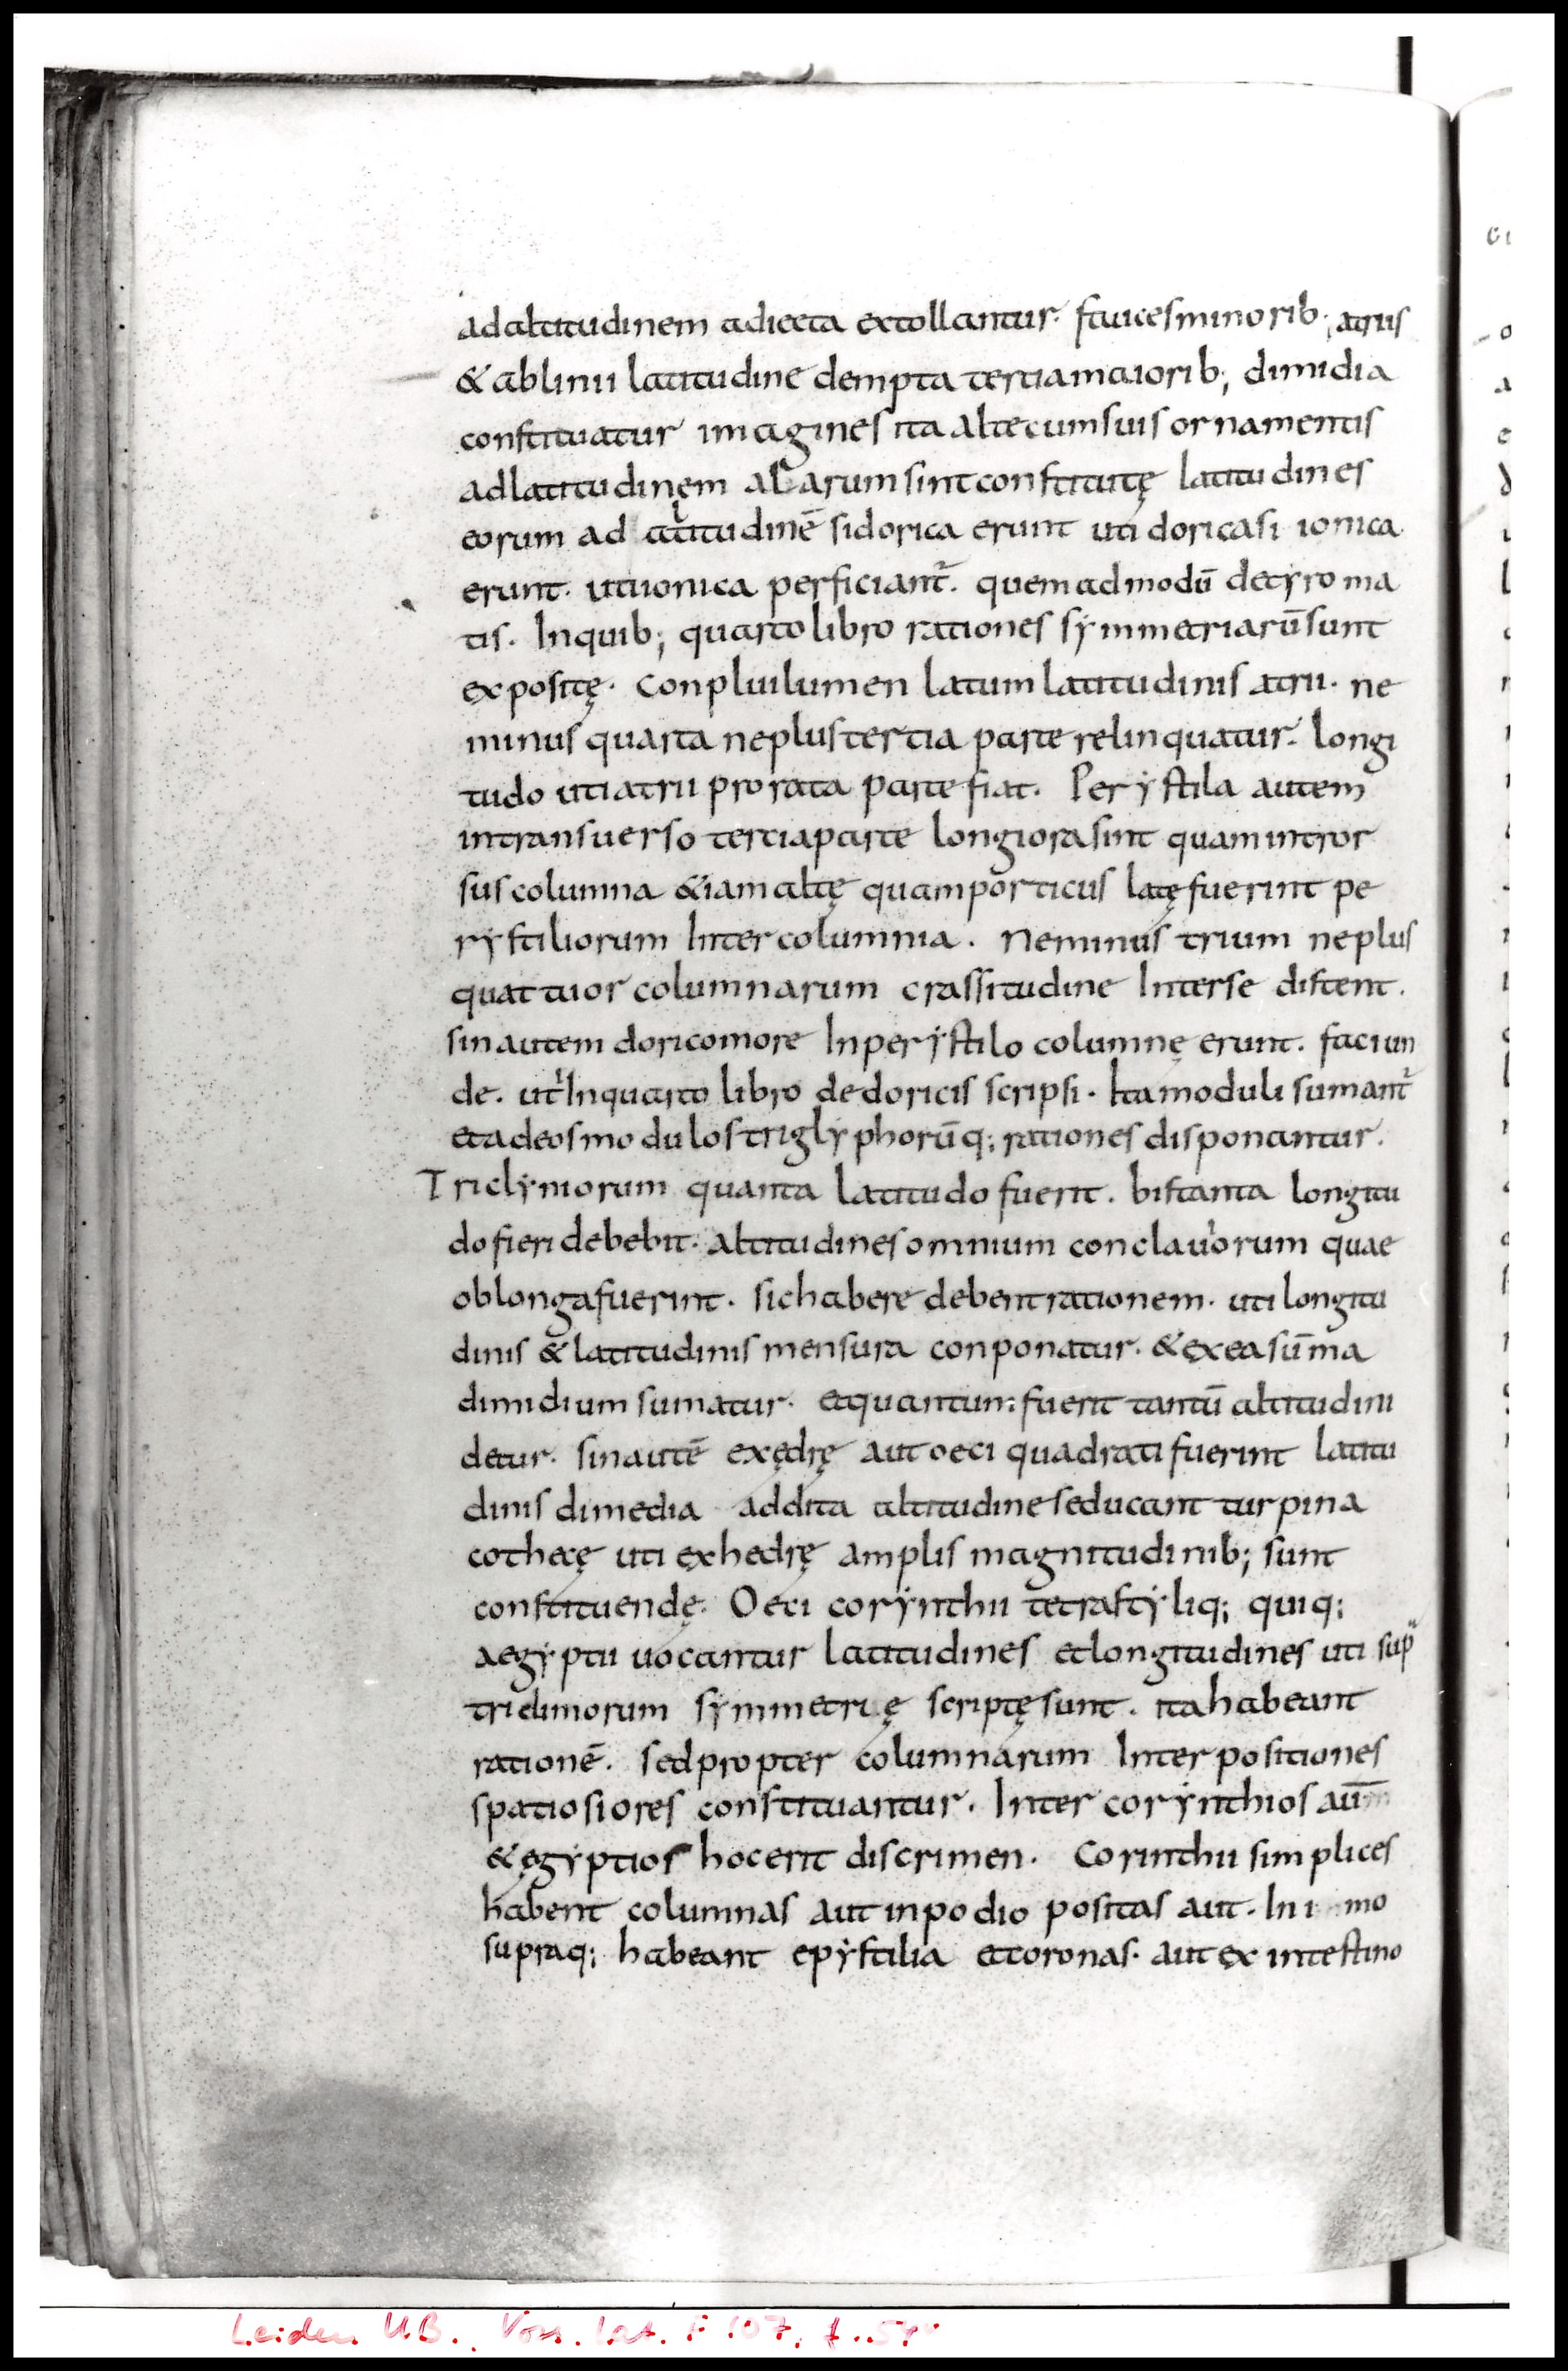 ad altitudinem adiecta extollantur. fauces minorib; atriis
& ablinii latitudine dempta tertia maiorib; dimidia
constituatur imagines ita alte cum suis ornamentis
ad latitudinęm alarum sint constitutę latitudines
eorum ad altitudinē si dorica erunt uti dorica si ionica
erunt. uti ionica perficiant᷑. quemadmodū detyroma
tis. In quib; quarto libro rationes symmetriarū sunt
expositę. Conpluilumen latum latitudinis atrii. ne
minus quarta ne plus tertia parte relinquatur. longi
tudo uti atrii pro rata parte fiat. Perystila autem
in transuerso tertia parte longiora sint quam intror
sus columna &iam altę quam porticus latę fuerint pe
rystiliorum Intercolumnia. Ne minus trium ne plus
quattuor columnarum crassitudine Inter se distent.
sin autem dorico more In perystilo columnę erunt. faciun
de. ut In quarto libro de doricis scripsi. Ita moduli sumant᷑
et ad eos modulos triglyphorūq; rationes disponantur.
Triclyniorum quanta latitudo fuerit. bis tanta longitu
do fieri debebit. Altitudines omnium conclauiorum quae
oblonga fuerint. sic habere debent rationem. uti longitu
dinis & latitudinis mensura conponatur. & ex ea sūma
dimidium sumatur. et quantum fuerit tantū altitudini
detur. sin autē exędrę aut oeci quadrati fuerint latitu
dinis dimedia addita altitudine seducant tur pina
cothecę uti exhedrę amplis magnitudinib; sunt
constituendę. Oeci corynthii tetrastyliq; quiq;
aegyptii uocantur latitudines et longitudines uti sup
tricliniorum symmetrię scriptę sunt. ita habeant
rationē. sed propter columnarum Interpositiones
spatiosiores constituantur. Inter corynthios aūm
& ęgyptios hoc erit discrimen. Corinthii simplices
habent columnas aut in podio positas aut. In imo
supraq; habeant epystilia et coronas. aut ex intestino
Leiden U.B. Voss. lat. F 107, f.